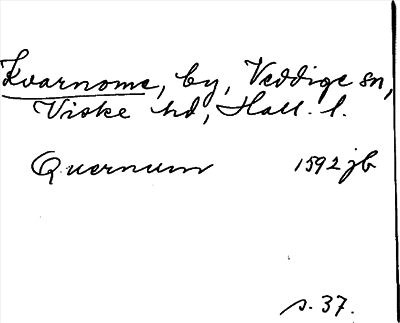 Kvarnome, by, Veddige sn,
Viske hd, Hall. l.
Quernum 1592 jb
s. 37.